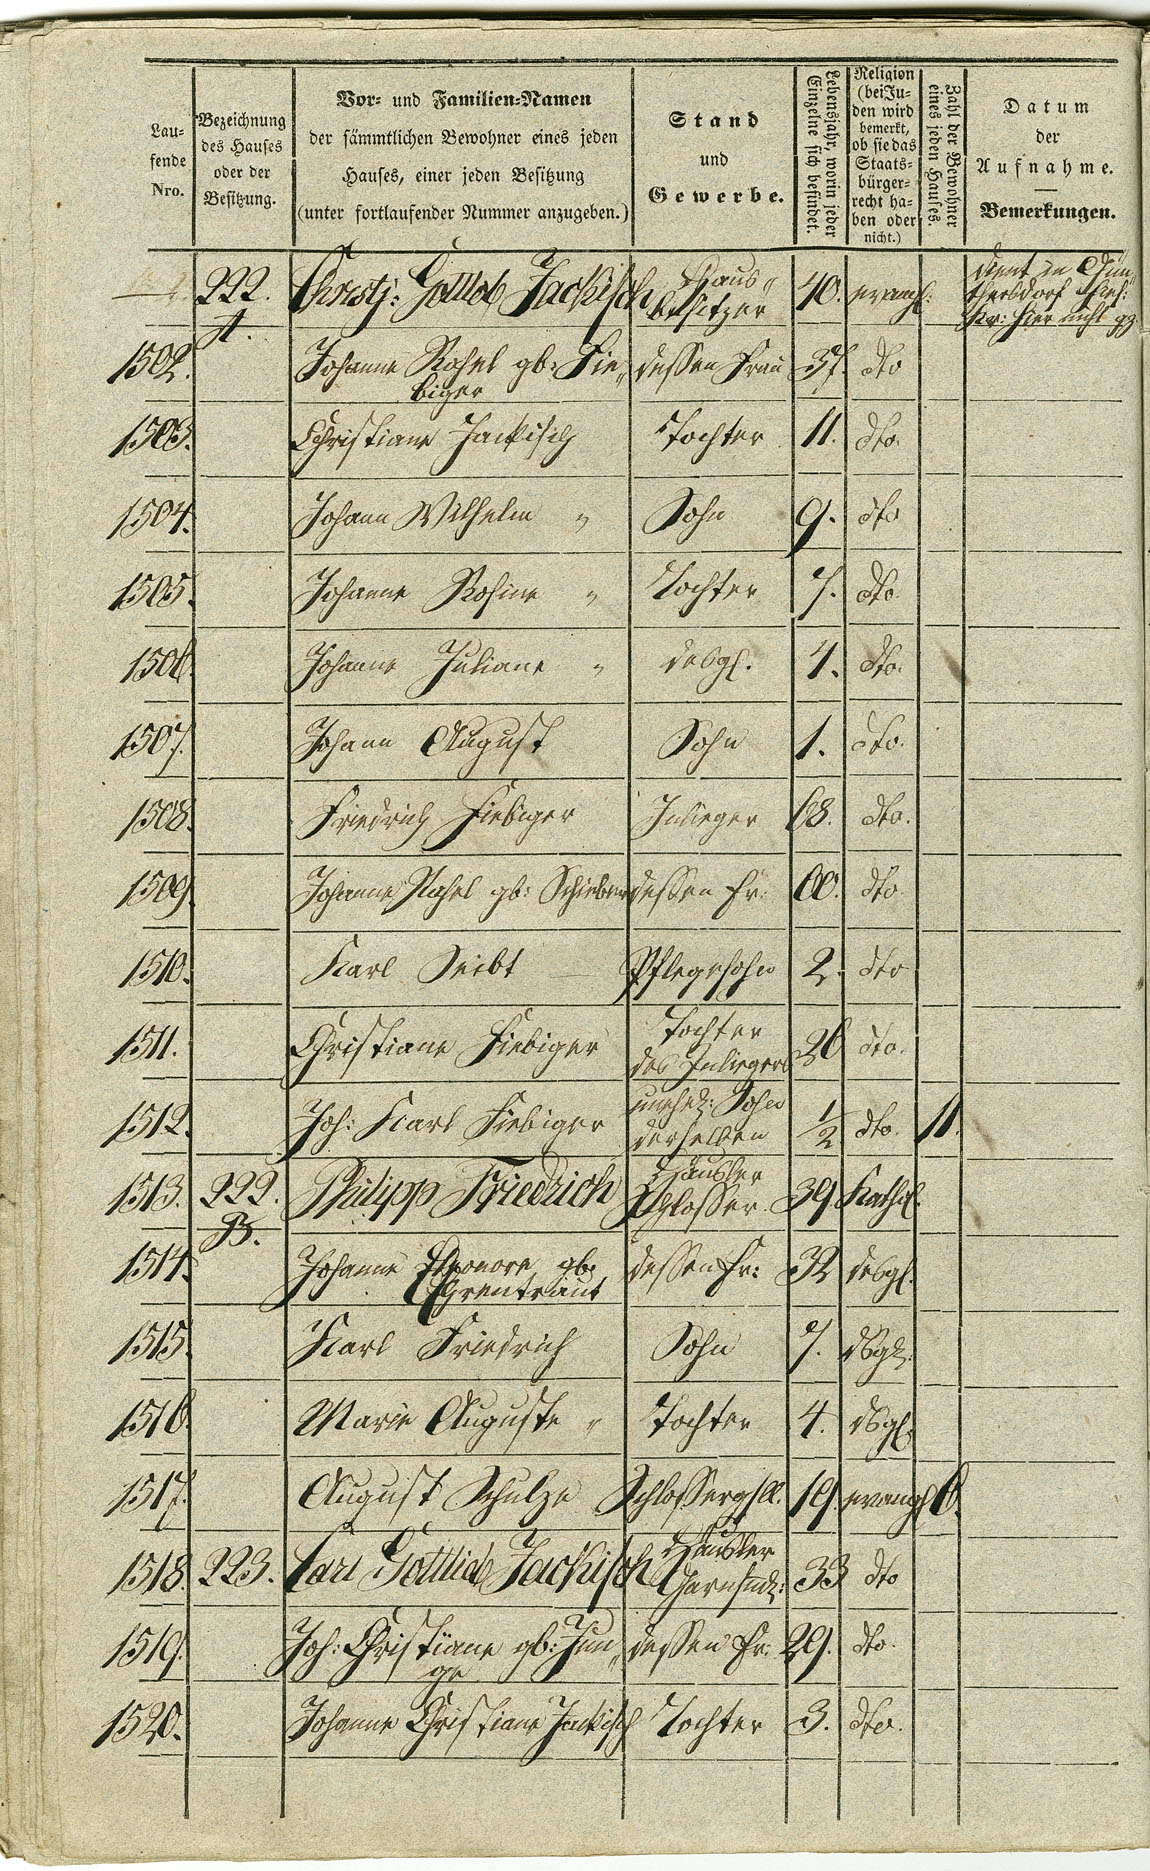 Lau-
fende
Nro.
Bezeichnung
des Hauses
oder der
Besitzung.
Vor- und Familien-Namen
der sämmtlichen Bewohner eines jeden
Hauses, einer jeden Besitzung
(unter fortlaufender Nummer anzugeben.)
Stand
und
Gewerbe.
Lebensjahr, worin jeder
Einzelne sich befindet.
Religion
(bei Ju-
den wird
bemerkt,
ob sie das
Staats-
bürger-
recht ha-
ben oder
nicht.)
Zahl der Bewohner
eines jeden Hauses.
Datum
der
Aufnahme.
Bemerkungen.
222. Christ: Gottlob Jackisch Haus- 40. evangl:
A. besitzer
dient in Gün-
thersdorf
hier nicht
1502. Johanne Rosel gb: Fie- dessen Frau 37. dto
biger
1503. Christiane Jackisch Tochter 11. dto.
1504. Johann Wilhelm " Sohn 9. dto
1505. Johanne Rosine " Tochter 7. dto.
1506. Johanne Juliane " desgl. 4. dto.
1507. Johann August Sohn 1. dto.
1508. Friedrich Fiebiger Inlieger 68. dto.
1509. Johanne Rahel gb: dessen Fr: 60. dto
1510. Karl Seibt Pflegesohn 2. dto
1511. Christiane Fiebiger Tochter 26 dto.
des Inliegers
1512. Joh: Karl Fiebiger unehel: Sohn 1/2 dto. 11.
derselben
1513. 222. Philipp Friedrich Häusler 39. Kathol.
B. Schlosser.
1514. Johanne Eleonore gb: dessen Fr: 32 desgl.
1515. Karl Friedrich Sohn 7. dsgl.
1516 Marie Auguste " Tochter 4. dsgl.
1517. August Schulze Schlossergsll. 19 evangl 6.
1518. 223. Carl Gottlieb Jackisch Häusler 33 dto
1519. Joh: Christiane gb: Jun- dessen Fr. 29. dto.
ge
1520. Johanne Christiane Jackisch Tochter 3. dto.